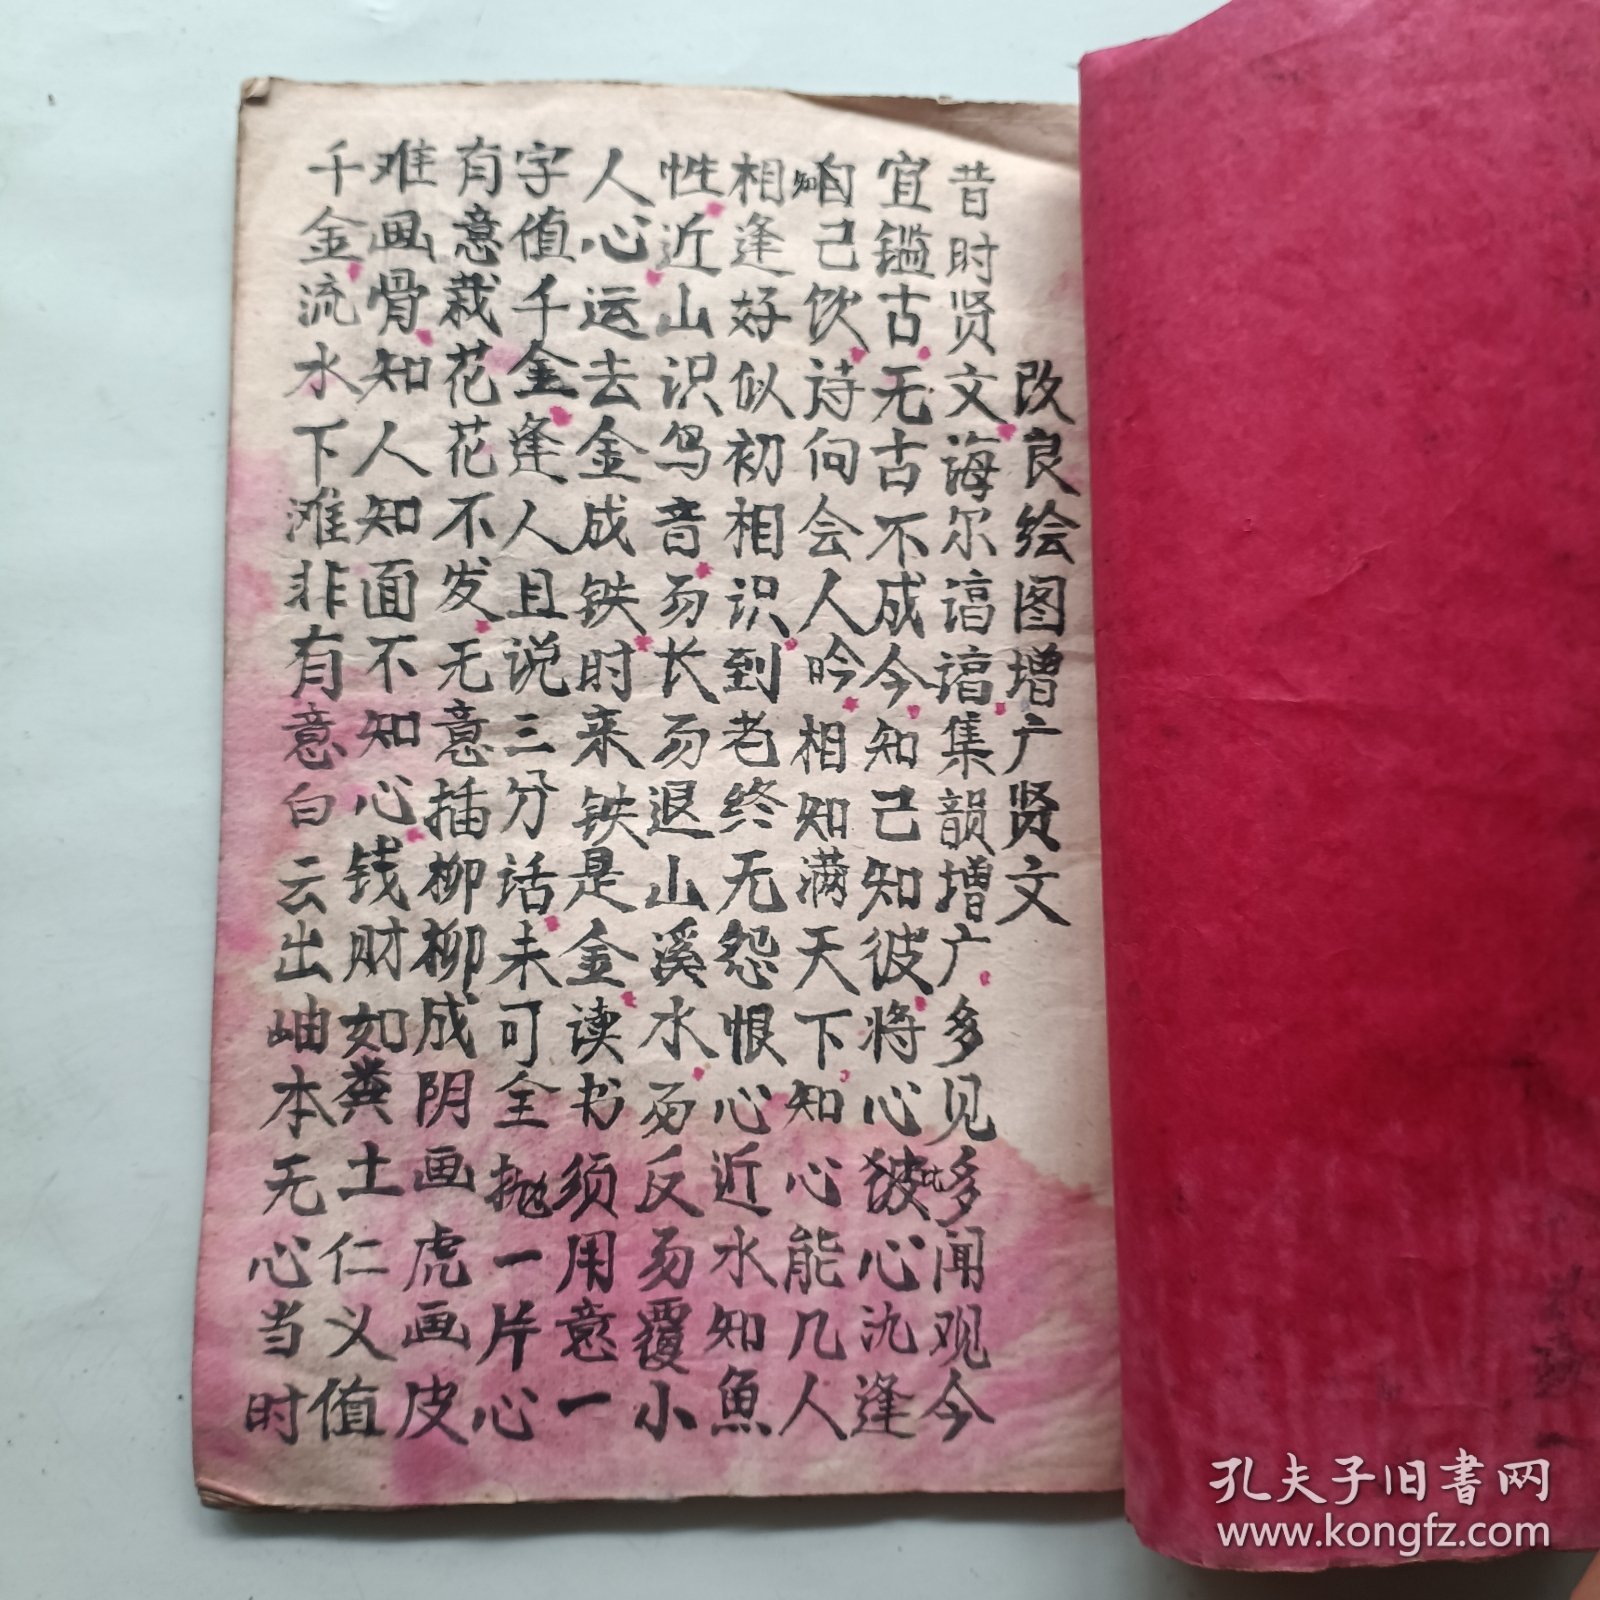 改良绘图增广贤文
昔时贤文海尔谆谆集韵增广多见多闻观今
宜鑑古无古不成今知己知彼将心比心氿逢
知自己饮诗向会人吟相知满天下知心能几人
相逢好似初相识到老终无怨恨心近水知魚
性近山识鸟音易长易退山溪水易反易覆小
人心运去金成铁时来铁是金读书须用意一
字值千金逢人且说三分话未可全抛一片心
有意栽花花不发无意插柳柳成阴画虎画皮
难画骨知人知面不知心钱财如粪土仁义值
千金流水下滩非有意白云出岫本无心当时
孔夫子旧書网
www.kongfz.com